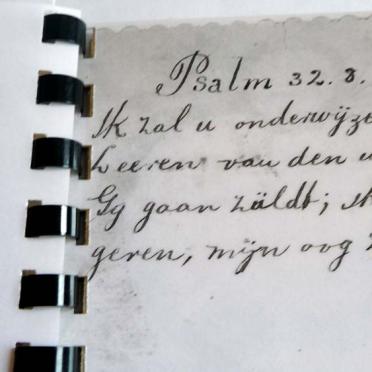 Psalm 32. 8.
Ik zal u onderwijze
Leeren van den
Gy gaan züldt; ik
geren, mijn oog